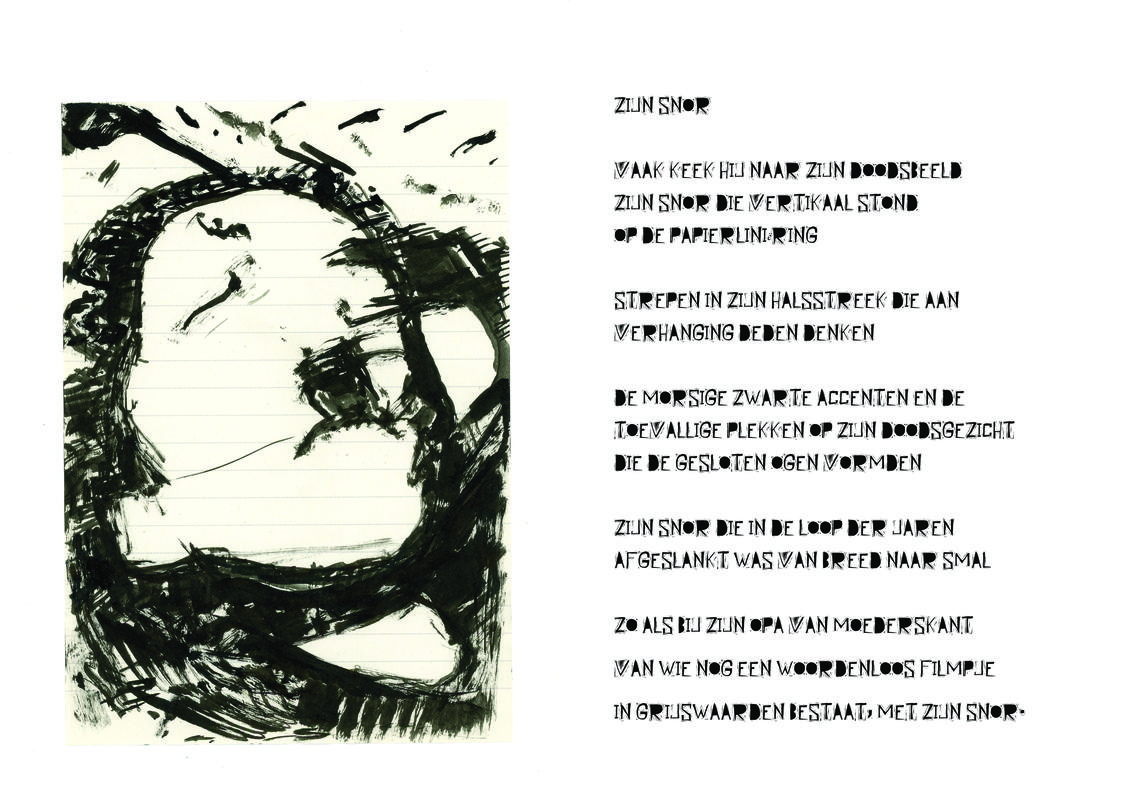 ZIJN SNOR
VAAK KEEK HIJ NAAR ZIJN DOODSBEELD
ZIJN SNOR DIE VERTIKAAL STOND
OP DE PAPIERLINIËRING
STREPEN IN ZIJN HALSSTREEK DIE AAN
VERHANGING DEDEN DENKEN
DE MORSIGE ZWARTE ACCENTEN EN DE
TOEVALLIGE PLEKKEN OP ZIJN DOODSGEZICHT
DIE DE GESLOTEN OGEN VORMDEN
ZIJN SNOR DIE IN DE LOOP DER JAREN
AFGESLANKT WAS VAN BREED NAAR SMAL
ZO ALS BIJ ZIJN OPA VAN MOEDERSKANT
VAN WIE NOG EEN WOORDENLOOS FILMPJE
IN GRIJSWAARDEN BESTAAT, MET ZIJN SNOR.